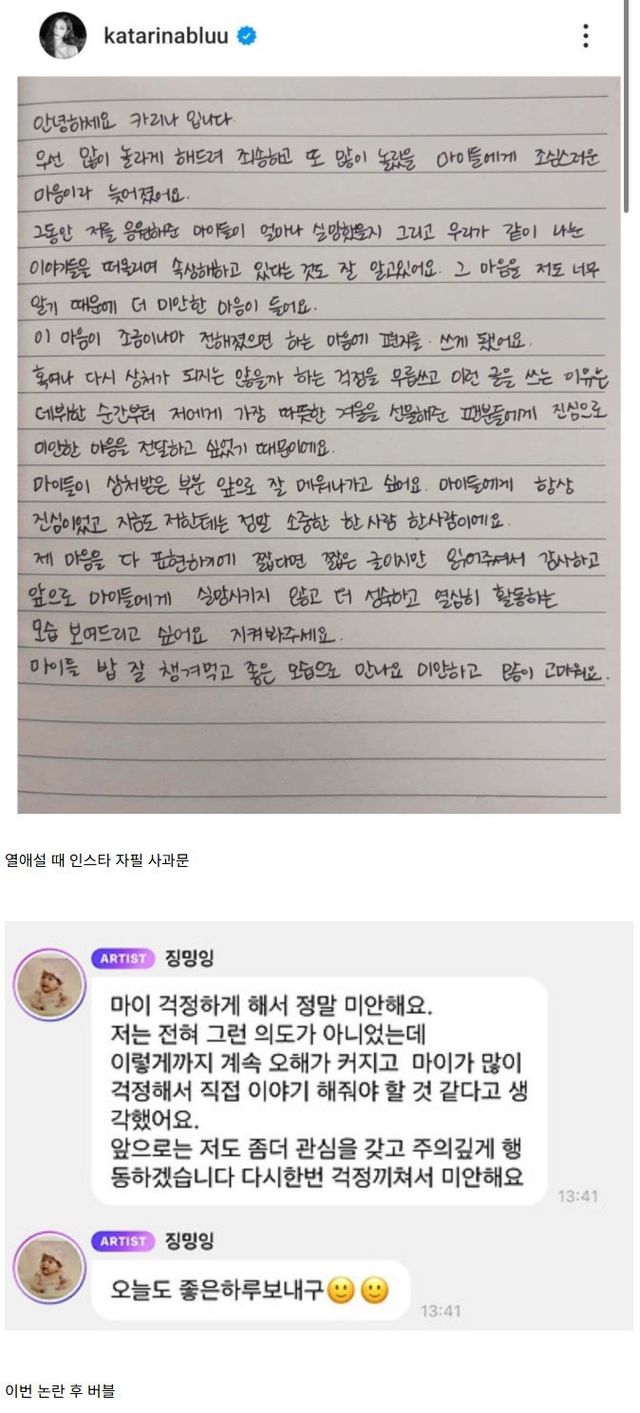 katarinabluu
안녕하세요 카리나 입니다
우선 많이 놀라게 해드려 죄송하고 또 많이 놀랐을 마이들에게 조심스러운
마음이라 늦어졌어요.
그동안 저를 응원해준 마이들이 얼마나 실망했을지 그리고 우리가 같이 나눈
이야기들을 떠올리며 속상해하고 있다는 것도 잘 알고있어요. 그 마음을 저도 너무
알기 때문에 더 미안한 마음이 들어요.
이 마음이 조금이나마 전해졌으면 하는 마음에 편지를 쓰게 됐어요.
혹여나 다시 상처가 되지는 않을까 하는 걱정을 무릅쓰고 이런 글을 쓰는 이유는
데뷔한 순간부터 저에게 가장 따뜻한 겨울을 선물해준 팬분들에게 진심으로
미안한 마음을 전달하고 싶었기 때문이에요.
마이들이 상처받은 부분 앞으로 잘 메워나가고 싶어요. 마이들에게 항상
진심이었고 지금도 저한테는 정말 소중한 한 사람 한사람이에요.
제 마음을 다 표현하기에 짧다면 짧은 글이지만 읽어주셔서 감사하고
앞으로 마이들에게 실망시키지 않고 더 성숙하고 열심히 활동하는
모습 보여드리고 싶어요 지켜봐주세요.
마이들 밥 잘 챙겨먹고 좋은 모습으로 만나요 미안하고 많이 고마워요.
열애설 때 인스타 자필 사과문
ARTIST 징밍잉
마이 걱정하게 해서 정말 미안해요.
저는 전혀 그런 의도가 아니었는데
이렇게까지 계속 오해가 커지고 마이가 많이
걱정해서 직접 이야기 해줘야 할 것 같다고 생
각했어요.
앞으로는 저도 좀더 관심을 갖고 주의깊게 행
동하겠습니다 다시한번 걱정끼쳐서 미안해요
13:41
ARTIST 징밍잉
오늘도 좋은하루보내구🙂🙂
13:41
이번 논란 후 버블